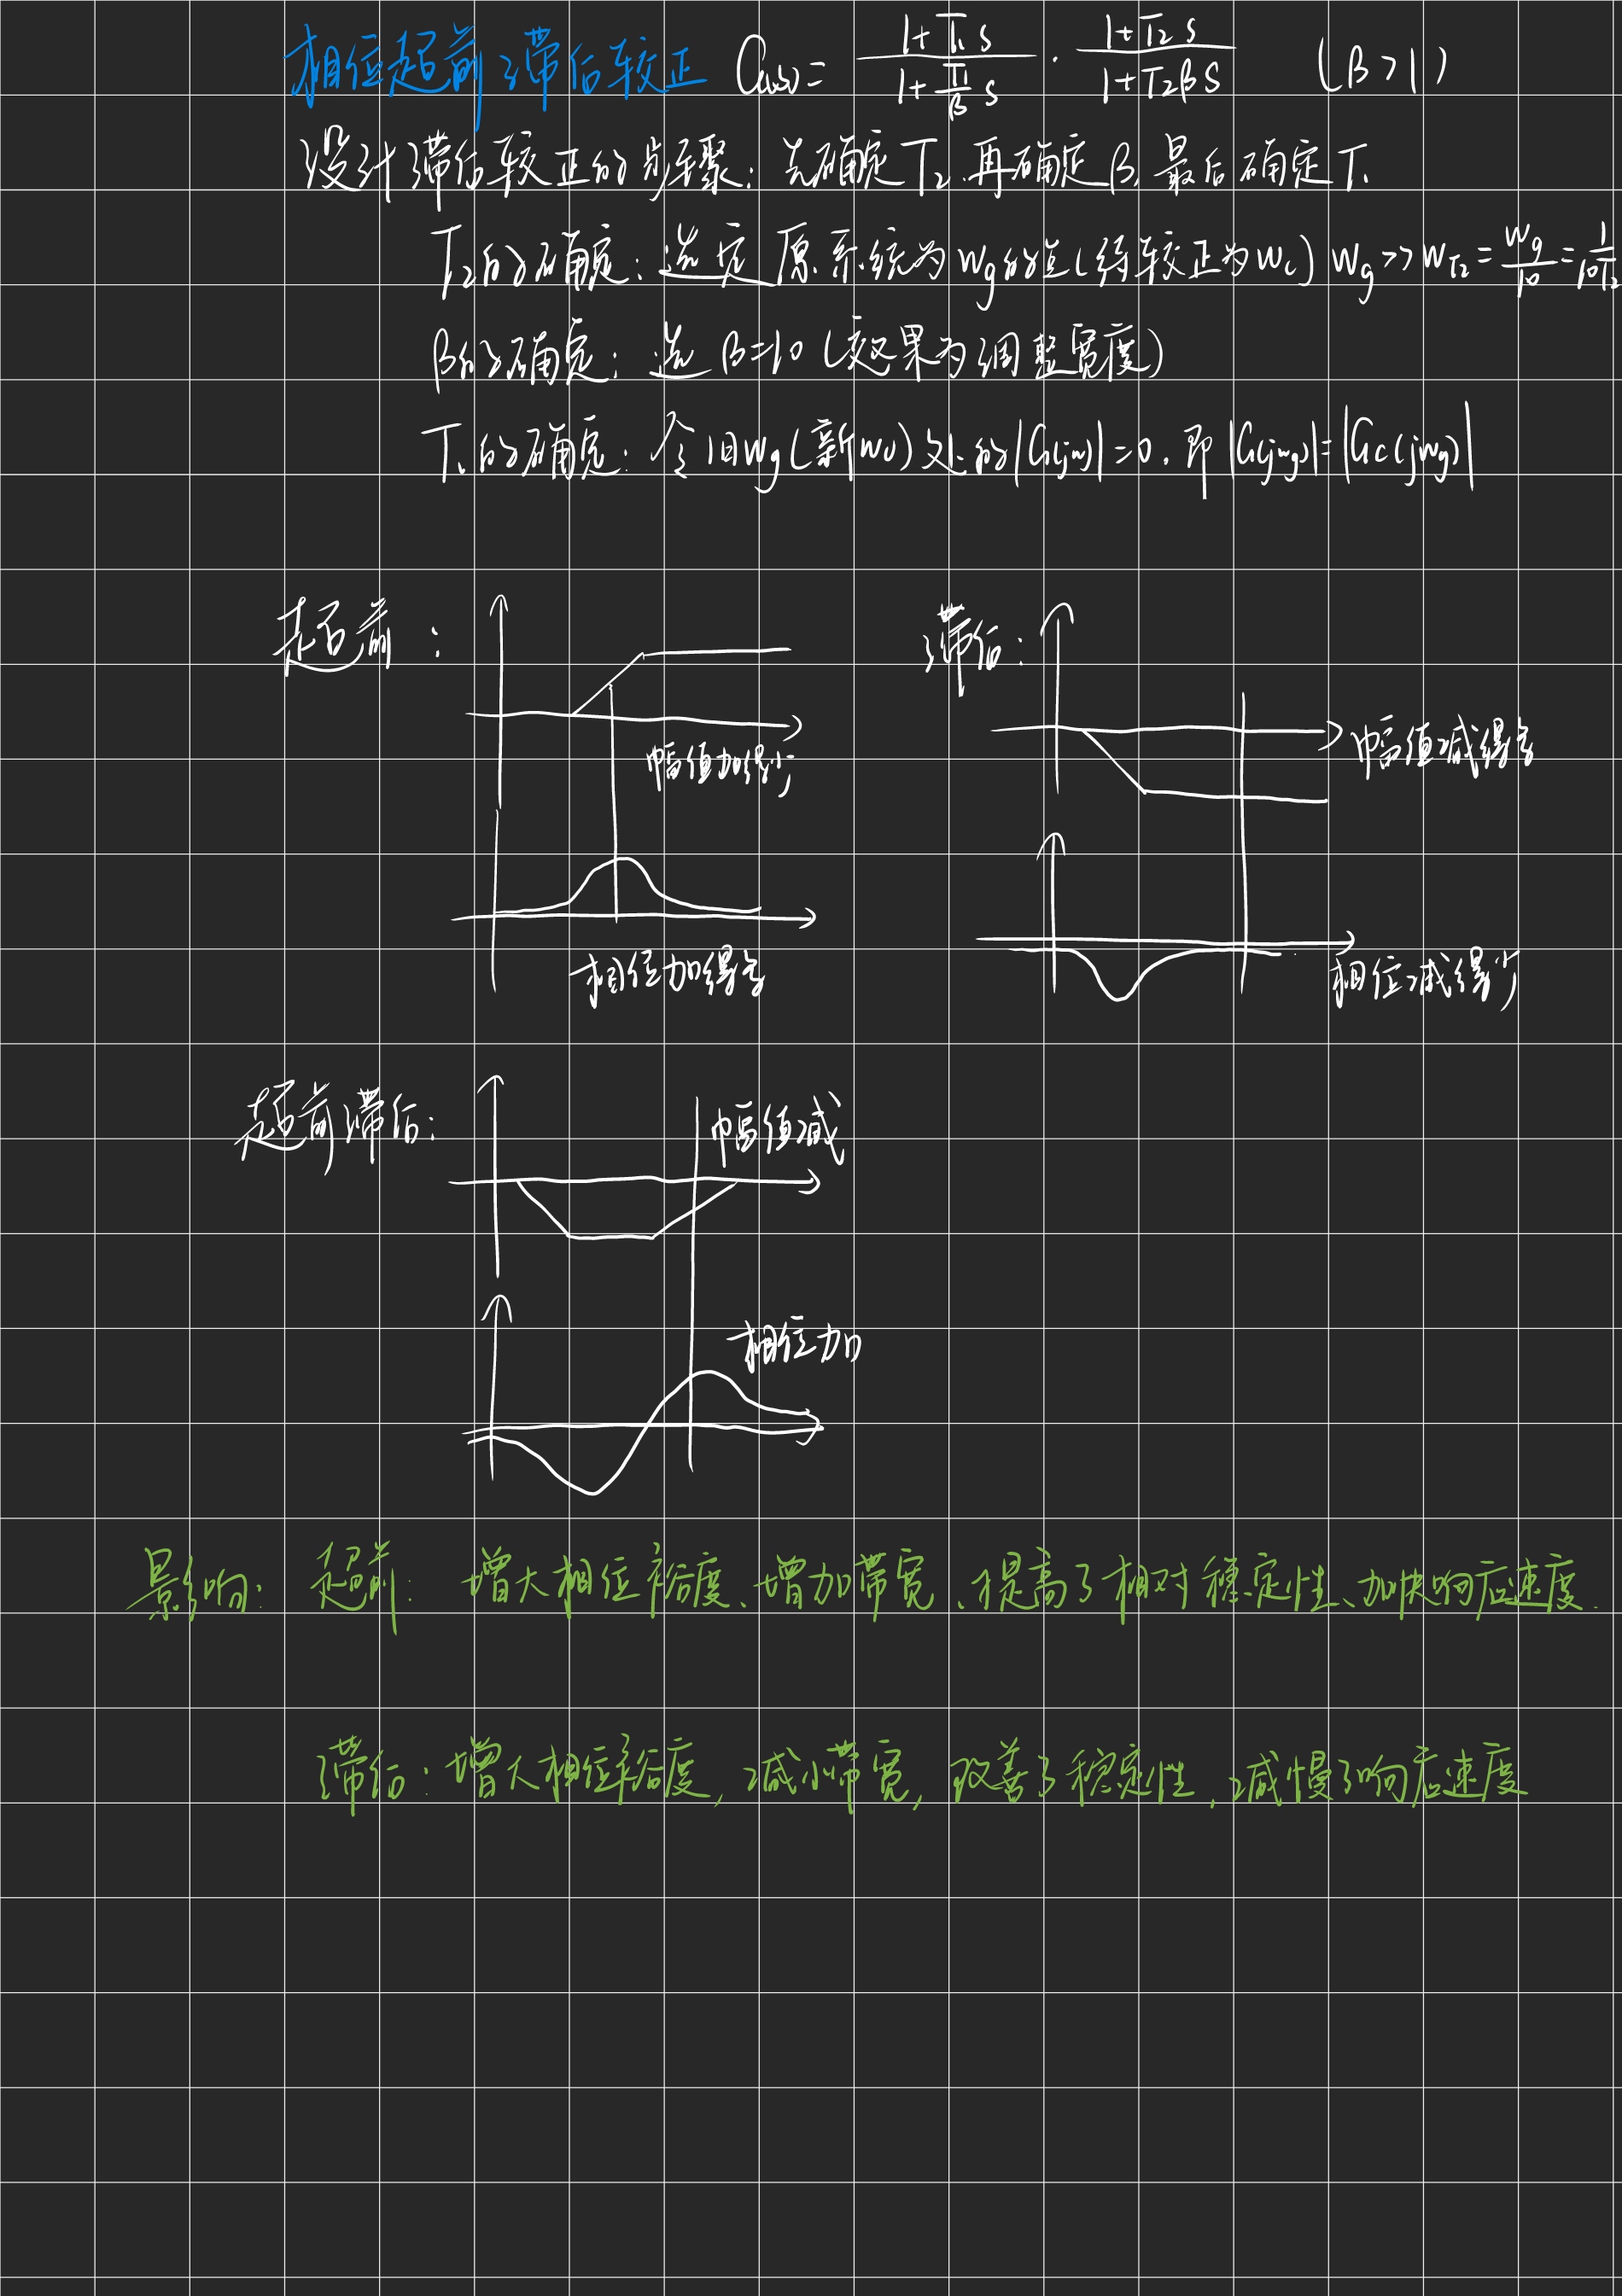 相位超前滞后较正 Gc(s) = (1+T₁s)/(1+(T₁/β)s) · (1+T₂s)/(1+T₂βs) (β>1)
设计滞后较正的步骤：先确定T₂.再确定β,最后确定T₁
T₂的确定：选定原系统为Wg的点(待较正为Wc) Wg>>W_T₂=Wg/10=1/10T₂
β的确定：选β=10(效果为调整宽度)
T₁的确定：令旧Wg(新Wc)处的|G(jw)|=0.即|G(jwg)|=|Gc(jwg)|
超前：
滞后：
幅值加得少
幅值减得多
相位加得多
相位减得少
超前滞后：
幅值减
相位加
影响：超前：增大相位裕度、增加带宽、提高了相对稳定性、加快响应速度.
滞后：增大相位裕度,减小带宽,改善了稳定性,减慢了响应速度